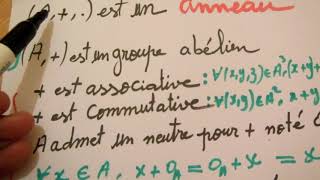 ,+,.) est un anneau
(A,+) est un groupe abélien
+ est associative: ∀(x,y,z)∈A³, (x+y)+
+ est Commutative: ∀(x,y)∈A², x+y
A admet un neutre pour + noté
∀x∈A, x+0_A = 0_A+x = x